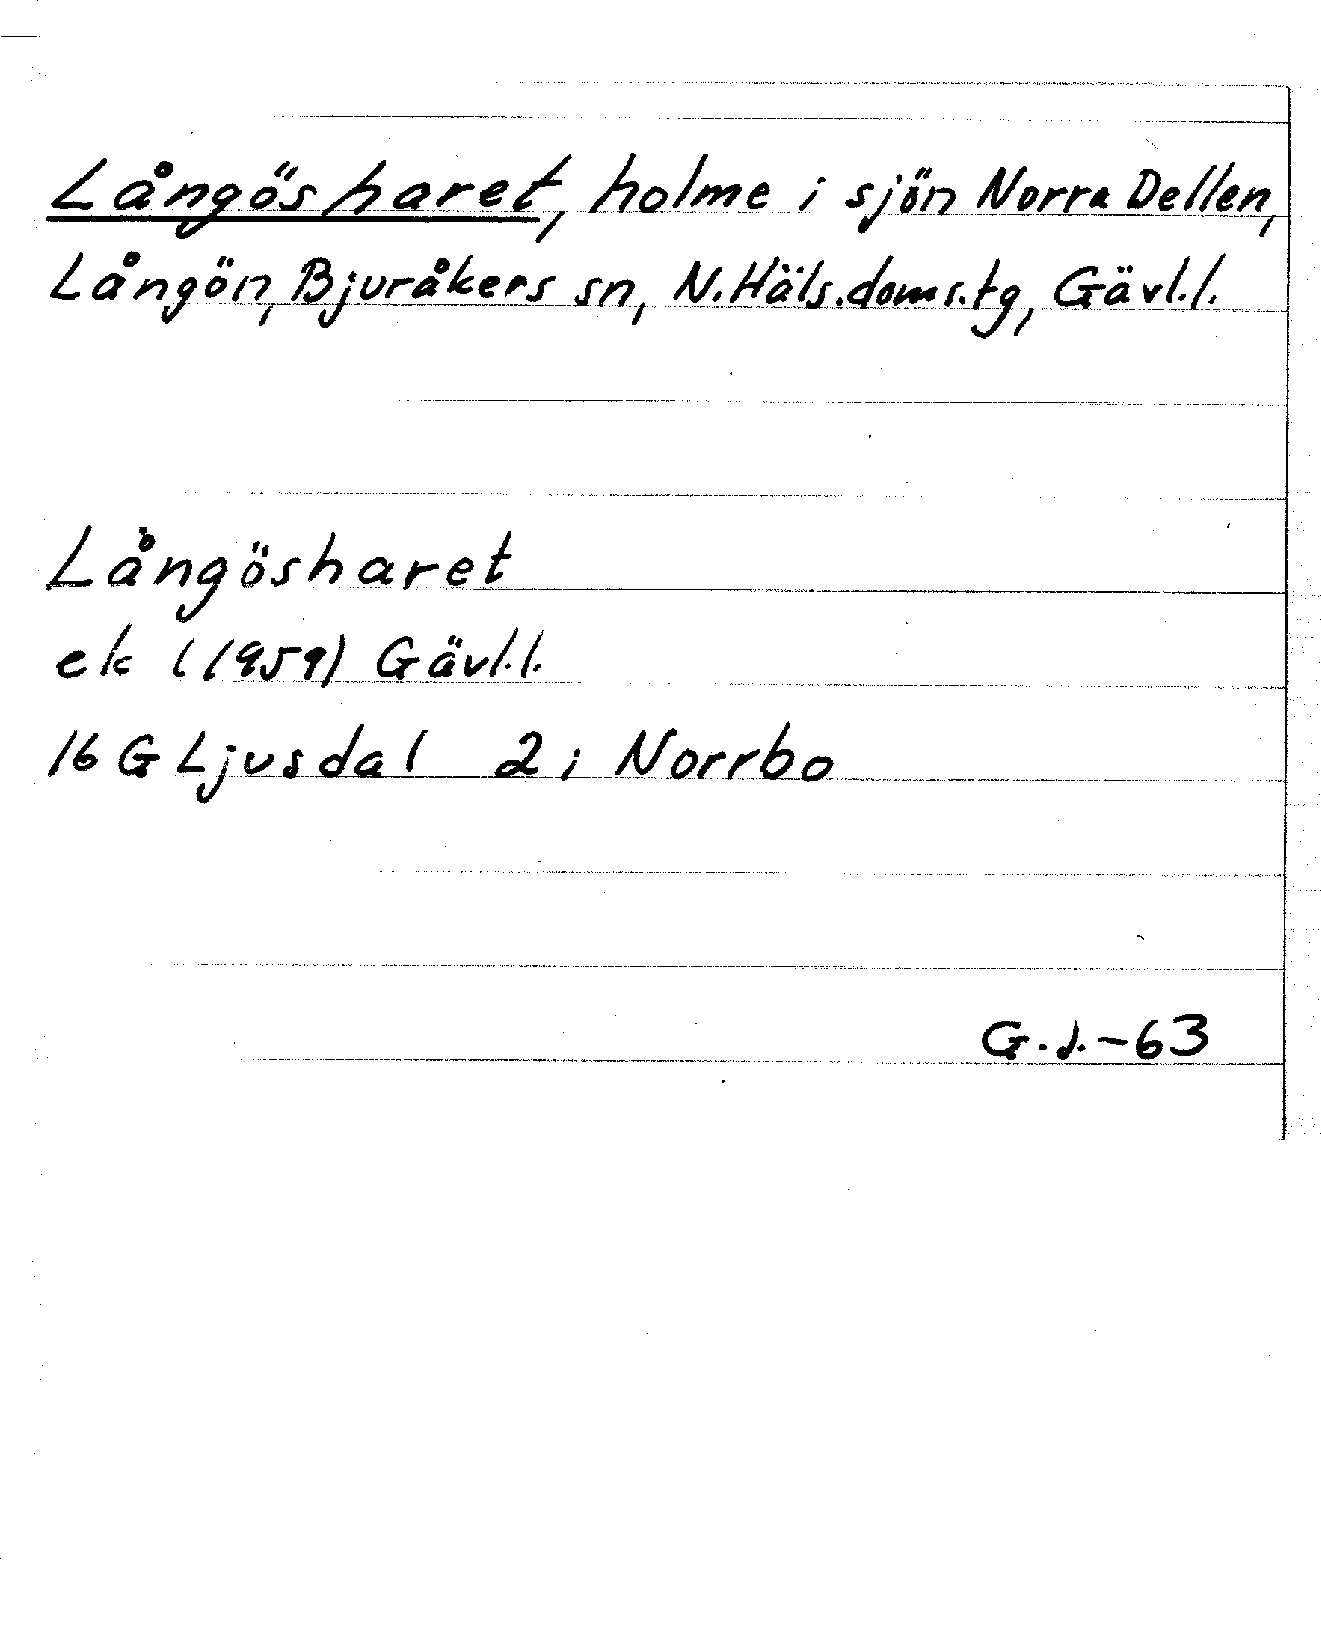 Långösharet, holme i sjön Norra Dellen,
Långön, Bjuråkers sn, N. Häls. doms. tg, Gävl.l.
Långösharet
ek (1959) Gävl.l.
16 G Ljusdal 2 i Norrbo
G.J.-63